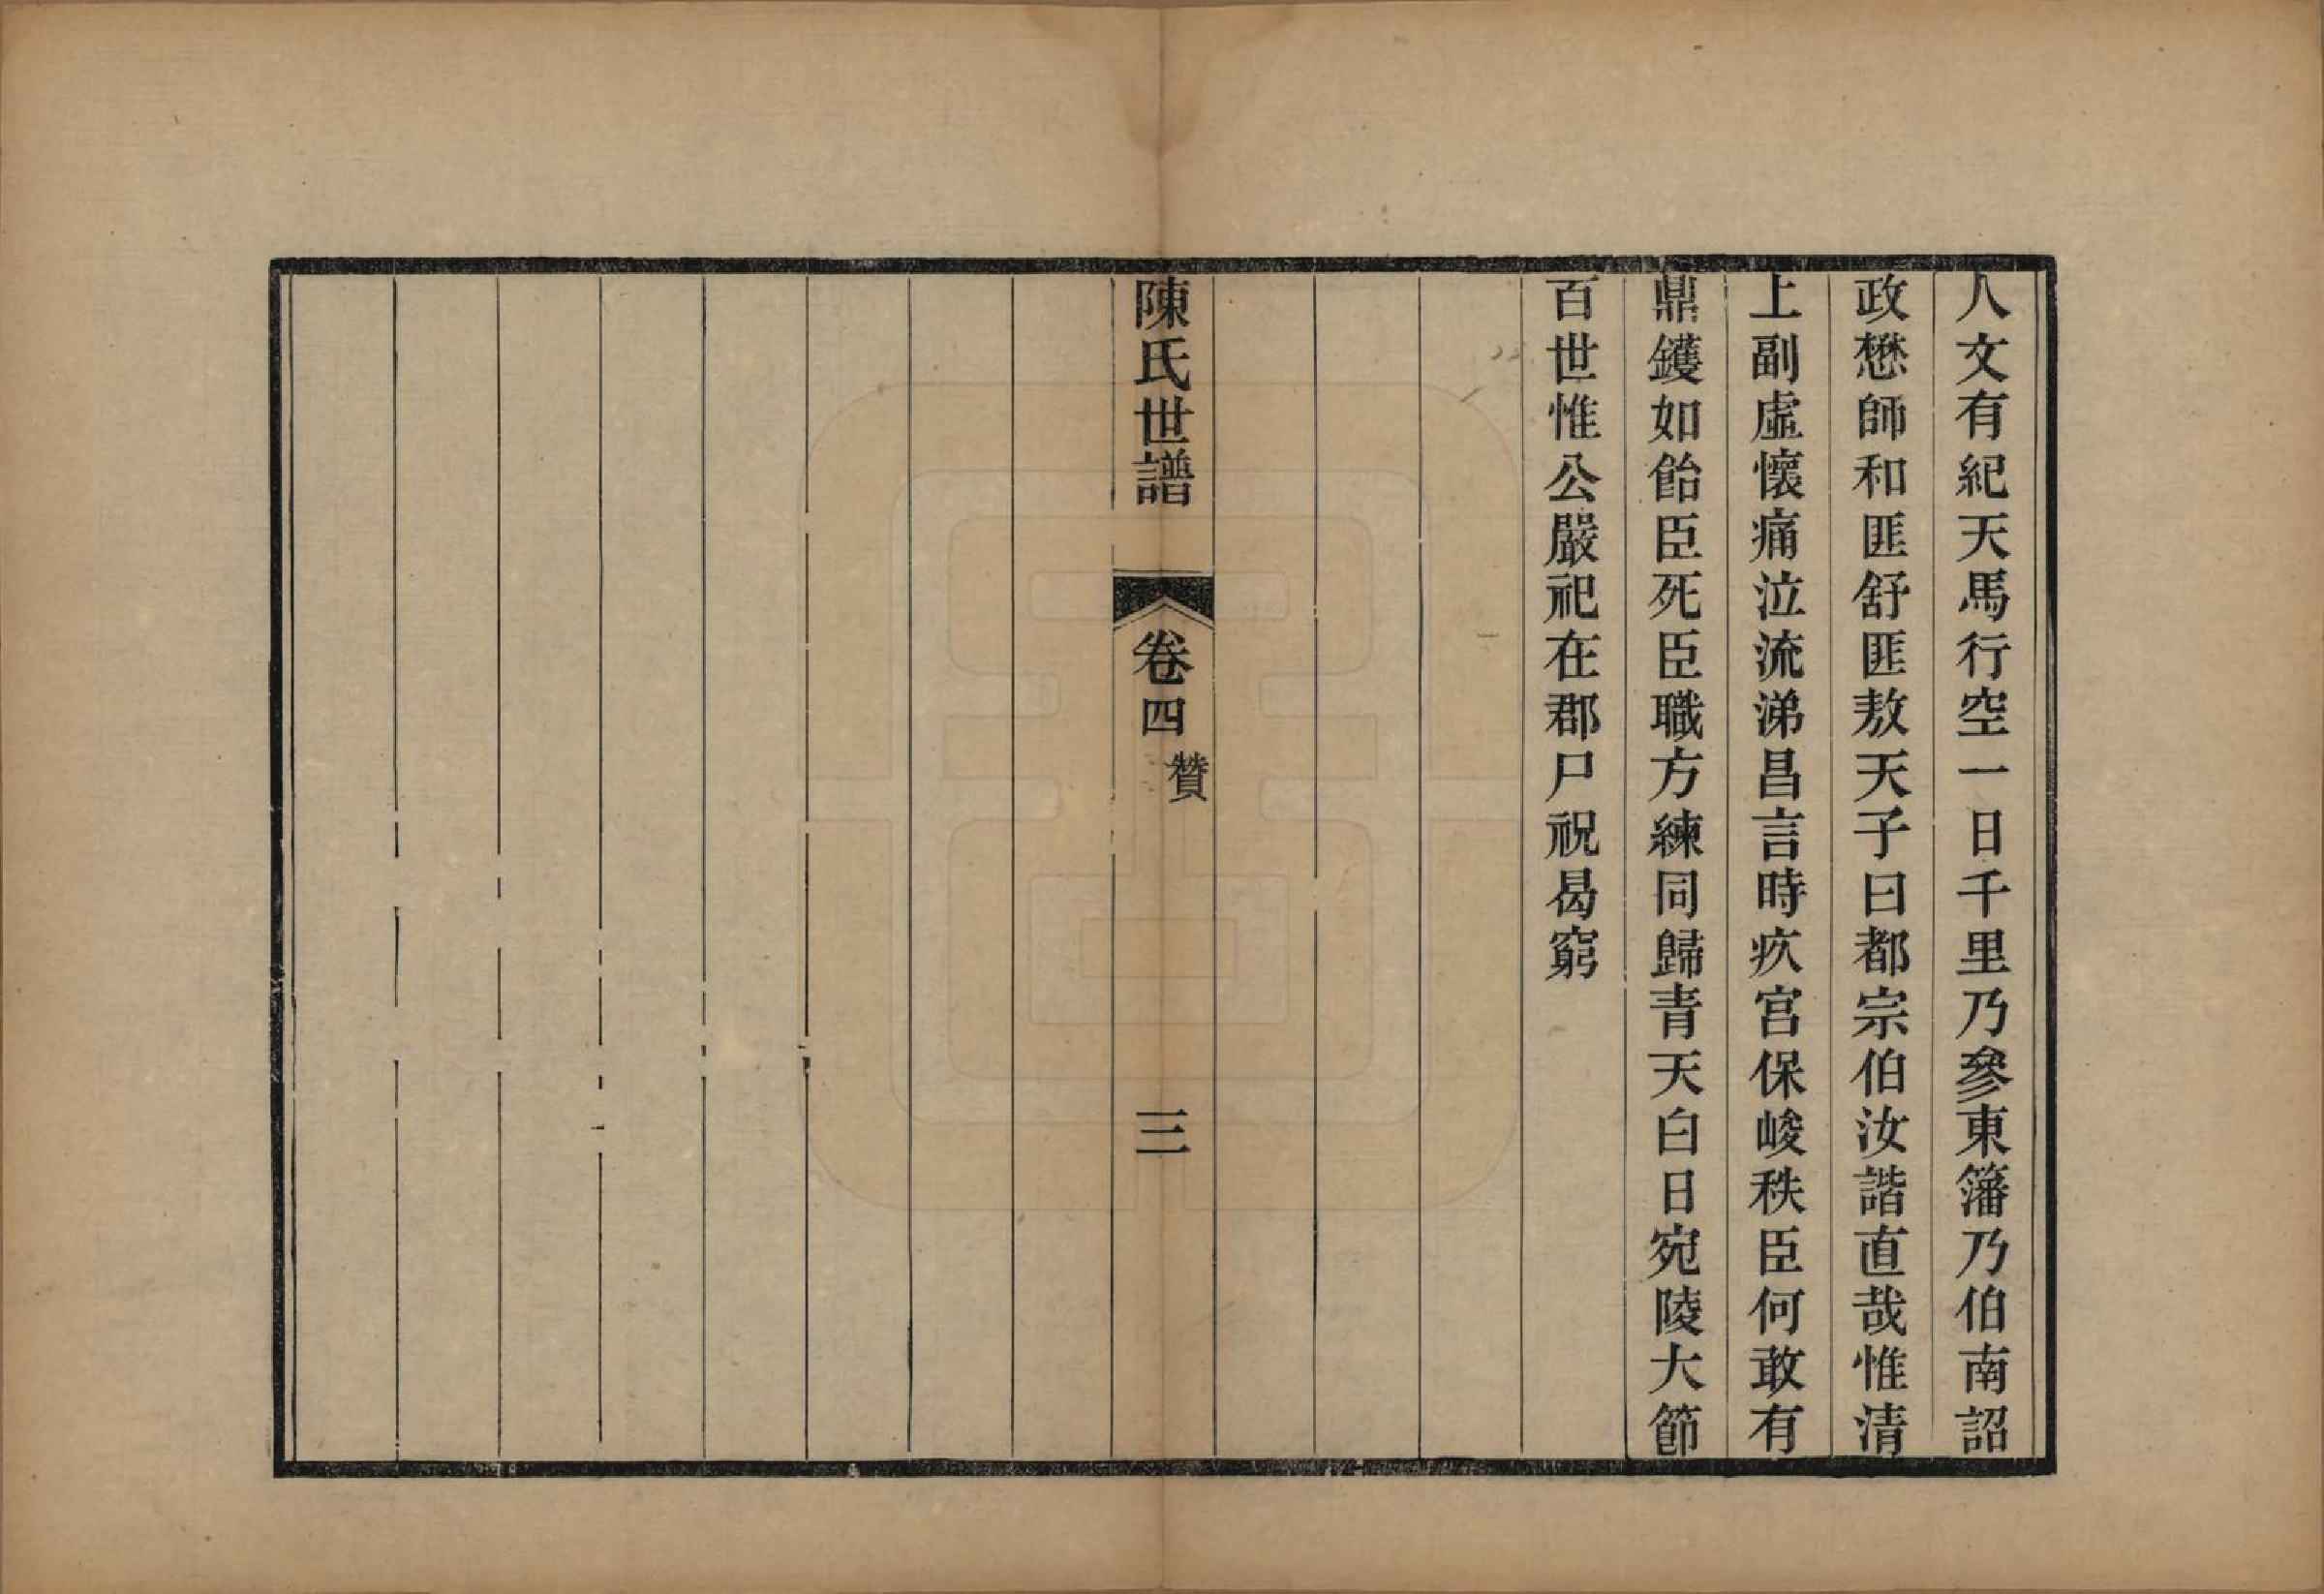 人文有紀天馬行空一日千里乃參東籓乃伯南詔
政懋師和匪舒匪敖天子曰都宗伯汝諧直哉惟清
上副虛懷痛泣流涕昌言時疚宮保峻秩臣何敢有
鼎鑊如飴臣死臣職方練同歸青天白日宛陵大節
百世惟公嚴祀在郡尸祝曷窮
陳氏世譜
卷四
贊
三